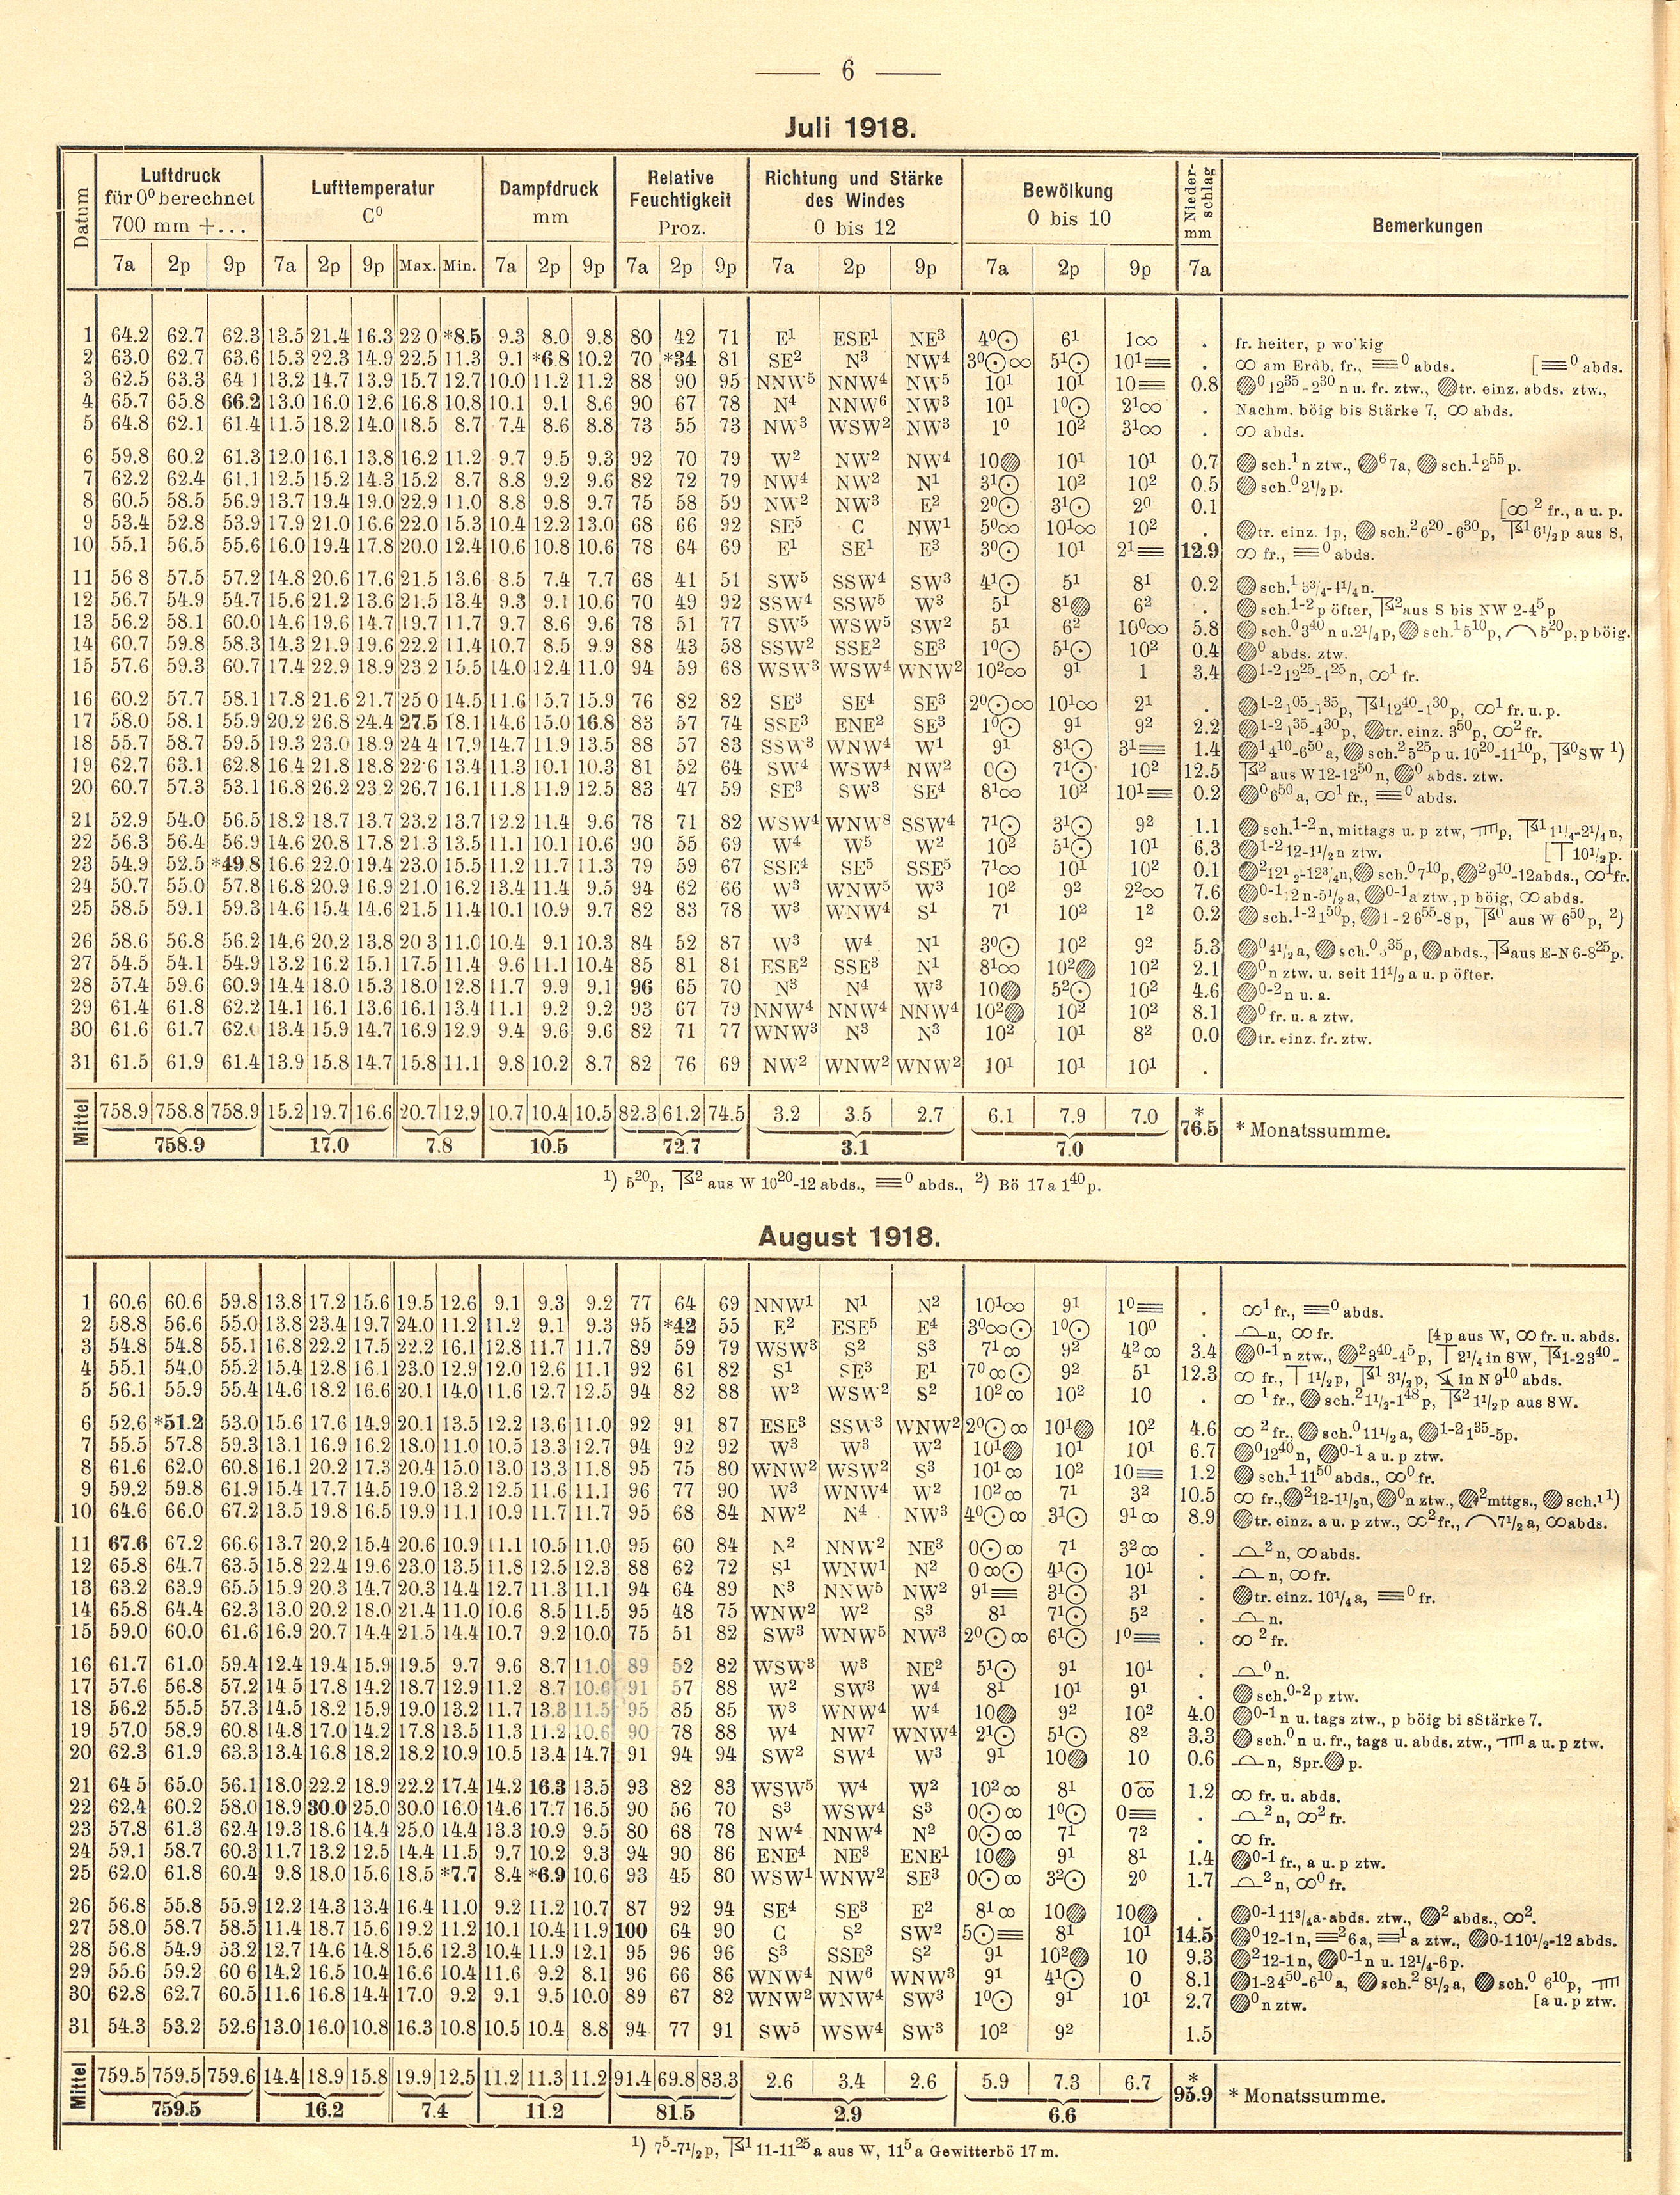 — 6 —
Juli 1918.
Datum
Luftdruck für 0⁰ berechnet 700 mm +...
Lufttemperatur C⁰
Dampfdruck mm
Relative Feuchtigkeit Proz.
Richtung und Stärke des Windes 0 bis 12
Bewölkung 0 bis 10
Niederschlag mm
Bemerkungen
7a 2p 9p 7a 2p 9p Max. Min. 7a 2p 9p 7a 2p 9p 7a 2p 9p 7a 2p 9p 7a
1 64.2 62.7 62.3 13.5 21.4 16.3 22 0 *8.5 9.3 8.0 9.8 80 42 71 E¹ ESE¹ NE³ 4⁰☉ 6¹ 1∞ . fr. heiter, p wo kig
2 63.0 62.7 63.6 15.3 22.3 14.9 22.5 11.3 9.1 *6.8 10.2 70 *34 81 SE² N³ NW⁴ 3⁰☉∞ 5¹☉ 10¹≡ . ∞ am Erdb. fr., ≡⁰ abds. [≡⁰ abds.
3 62.5 63.3 64 1 13.2 14.7 13.9 15.7 12.7 10.0 11.2 11.2 88 90 95 NNW⁵ NNW⁴ NW⁵ 10¹ 10¹ 10≡ 0.8 ●⁰ 12³⁵-2³⁰ n u. fr. ztw., ●tr. einz. abds. ztw.,
4 65.7 65.8 66.2 13.0 16.0 12.6 16.8 10.8 10.1 9.1 8.6 90 67 78 N⁴ NNW⁶ NW³ 10¹ 1⁰☉ 2¹∞ . Nachm. böig bis Stärke 7, ∞ abds.
5 64.8 62.1 61.4 11.5 18.2 14.0 18.5 8.7 7.4 8.6 8.8 73 55 73 NW³ WSW² NW³ 1⁰ 10² 3¹∞ . ∞ abds.
6 59.8 60.2 61.3 12.0 16.1 13.8 16.2 11.2 9.7 9.5 9.3 92 70 79 W² NW² NW⁴ 10● 10¹ 10¹ 0.7 ● sch.¹ n ztw., ●⁶ 7a, ● sch.¹ 2⁵⁵ p.
7 62.2 62.4 61.1 12.5 15.2 14.3 15.2 8.7 8.8 9.2 9.6 82 72 79 NW⁴ NW² N¹ 3¹☉ 10² 10² 0.5 ● sch.⁰ 2¹/₂ p.
8 60.5 58.5 56.9 13.7 19.4 19.0 22.9 11.0 8.8 9.8 9.7 75 58 59 NW² NW³ E² 2⁰☉ 3¹☉ 2⁰ 0.1 [∞² fr., a u. p.
9 53.4 52.8 53.9 17.9 21.0 16.6 22.0 15.3 10.4 12.2 13.0 68 66 92 SE⁵ C NW¹ 5⁰∞ 10¹∞ 10² . ●tr. einz. 1p, ● sch.² 6²⁰-6³⁰ p, ⦏¹ 6¹/₂ p aus S,
10 55.1 56.5 55.6 16.0 19.4 17.8 20.0 12.4 10.6 10.8 10.6 78 64 69 E¹ SE¹ E³ 3⁰☉ 10¹ 2¹≡ 12.9 ∞ fr., ≡⁰ abds.
11 56 8 57.5 57.2 14.8 20.6 17.6 21.5 13.6 8.5 7.4 7.7 68 41 51 SW⁵ SSW⁴ SW³ 4¹☉ 5¹ 8¹ 0.2 ● sch.¹ 3³/₄-4¹/₄ n.
12 56.7 54.9 54.7 15.6 21.2 13.6 21.5 13.4 9.3 9.1 10.6 70 49 92 SSW⁴ SSW⁵ W³ 5¹ 8¹● 6² . ● sch.¹⁻² p öfter, ⦏² aus S bis NW 2-4⁵ p
13 56.2 58.1 60.0 14.6 19.6 14.7 19.7 11.7 9.7 8.6 9.6 78 51 77 SW⁵ WSW⁵ SW² 5¹ 6² 10⁰∞ 5.8 ● sch.⁰ 3⁴⁰ n u. 2¹/₄ p, ● sch.¹ 5¹⁰ p, ⌒ 5²⁰ p, p böig.
14 60.7 59.8 58.3 14.3 21.9 19.6 22.2 11.4 10.7 8.5 9.9 88 43 58 SSW² SSE² SE³ 1⁰☉ 5¹☉ 10² 0.4 ●⁰ abds. ztw.
15 57.6 59.3 60.7 17.4 22.9 18.9 23 2 15.5 14.0 12.4 11.0 94 59 68 WSW³ WSW⁴ WNW² 10²∞ 9¹ 1 3.4 ●¹⁻² 12²⁵-1²⁵ n, ∞¹ fr.
16 60.2 57.7 58.1 17.8 21.6 21.7 25 0 14.5 11.6 15.7 15.9 76 82 82 SE³ SE⁴ SE³ 2⁰☉∞ 10¹∞ 2¹ . ●¹⁻² 1⁰⁵-1³⁵ p, ⦏¹ 12⁴⁰-1³⁰ p, ∞¹ fr. u. p.
17 58.0 58.1 55.9 20.2 26.8 24.4 27.5 18.1 14.6 15.0 16.8 83 57 74 SSE³ ENE² SE³ 1⁰☉ 9¹ 9² 2.2 ●¹⁻² 1³⁵-4³⁰ p, ●tr. einz. 3⁵⁰ p, ∞² fr.
18 55.7 58.7 59.5 19.3 23.0 18.9 24 4 17.9 14.7 11.9 13.5 88 57 83 SSW³ WNW⁴ W¹ 9¹ 8¹☉ 3¹≡ 1.4 ●¹ 4¹⁰-6⁵⁰ a, ● sch.² 5²⁵ p u. 10²⁰-11¹⁰ p, ⦏⁰ SW ¹)
19 62.7 63.1 62.8 16.4 21.8 18.8 22.6 13.4 11.3 10.1 10.3 81 52 64 SW⁴ WSW⁴ NW² 0☉ 7¹☉ 10² 12.5 ⦏² aus W 12-12⁵⁰ n, ●⁰ abds. ztw.
20 60.7 57.3 53.1 16.8 26.2 23.2 26.7 16.1 11.8 11.9 12.5 83 47 59 SE³ SW³ SE⁴ 8¹∞ 10² 10¹≡ 0.2 ●⁰ 6⁵⁰ a, ∞¹ fr., ≡⁰ abds.
21 52.9 54.0 56.5 18.2 18.7 13.7 23.2 13.7 12.2 11.4 9.6 78 71 82 WSW⁴ WNW⁸ SSW⁴ 7¹☉ 3¹☉ 9² 1.1 ● sch.¹⁻² n, mittags u. p ztw, p, ⦏¹ 1¹/₄-2¹/₄ n,
22 56.3 56.4 56.9 14.6 20.8 17.8 21.3 13.5 11.1 10.1 10.6 90 55 69 W⁴ W⁵ W² 10² 5¹☉ 10¹ 6.3 ●¹⁻² 12-1¹/₂ n ztw. [T 10¹/₂ p.
23 54.9 52.5 *49 8 16.6 22.0 19.4 23.0 15.5 11.2 11.7 11.3 79 59 67 SSE⁴ SE⁵ SSE⁵ 7¹∞ 10¹ 10² 0.1 ●² 12¹ ₂-12³/₄ n, ● sch.⁰ 7¹⁰ p, ●² 9¹⁰-12 abds., ∞¹ fr.
24 50.7 55.0 57.8 16.8 20.9 16.9 21.0 16.2 13.4 11.4 9.5 94 62 66 W³ WNW⁵ W³ 10² 9² 2²∞ 7.6 ●⁰⁻¹ 12 n-5¹/₂ a, ●⁰⁻¹ a ztw., p böig, ∞ abds.
25 58.5 59.1 59.3 14.6 15.4 14.6 21.5 11.4 10.1 10.9 9.7 82 83 78 W³ WNW⁴ S¹ 7¹ 10² 1² 0.2 ● sch.¹⁻² 1⁵⁰ p, ●1-2 6⁵⁵-8 p, ⦏⁰ aus W 6⁵⁰ p, ²)
26 58.6 56.8 56.2 14.6 20.2 13.8 20 3 11.0 10.4 9.1 10.3 84 52 87 W³ W⁴ N¹ 3⁰☉ 10² 9² 5.3 ●⁰ 4¹/₂ a, ● sch.⁰ ³⁵ p, ● abds., ⦏ aus E-N 6-8²⁵ p.
27 54.5 54.1 54.9 13.2 16.2 15.1 17.5 11.4 9.6 11.1 10.4 85 81 81 ESE² SSE³ N¹ 8¹∞ 10²● 10² 2.1 ●⁰ n ztw. u. seit 11¹/₂ a u. p öfter.
28 57.4 59.6 60.9 14.4 18.0 15.3 18.0 12.8 11.7 9.9 9.1 96 65 70 N³ N⁴ W³ 10● 5²☉ 10² 4.6 ●⁰⁻² n u. a.
29 61.4 61.8 62.2 14.1 16.1 13.6 16.1 13.4 11.1 9.2 9.2 93 67 79 NNW⁴ NNW⁴ NNW⁴ 10²● 10² 10² 8.1 ●⁰ fr. u. a ztw.
30 61.6 61.7 62.0 13.4 15.9 14.7 16.9 12.9 9.4 9.6 9.6 82 71 77 WNW³ N³ N³ 10² 10¹ 8² 0.0 ●tr. einz. fr. ztw.
31 61.5 61.9 61.4 13.9 15.8 14.7 15.8 11.1 9.8 10.2 8.7 82 76 69 NW² WNW² WNW² 10¹ 10¹ 10¹ .
Mittel 758.9 758.8 758.9 15.2 19.7 16.6 20.7 12.9 10.7 10.4 10.5 82.3 61.2 74.5 3.2 3.5 2.7 6.1 7.9 7.0 * 76.5 * Monatssumme.
758.9 17.0 7.8 10.5 72.7 3.1 7.0
¹) 5²⁰ p, ⦏² aus W 10²⁰-12 abds., ≡⁰ abds., ²) Bö 17 a 1⁴⁰ p.
August 1918.
1 60.6 60.6 59.8 13.8 17.2 15.6 19.5 12.6 9.1 9.3 9.2 77 64 69 NNW¹ N¹ N² 10¹∞ 9¹ 1⁰≡ . ∞¹ fr., ≡⁰ abds.
2 58.8 56.6 55.0 13.8 23.4 19.7 24.0 11.2 11.2 9.1 9.3 95 *42 55 E² ESE⁵ E⁴ 3⁰∞☉ 1⁰☉ 10⁰ . ⌓ n, ∞ fr. [4 p aus W, ∞ fr. u. abds.
3 54.8 54.8 55.1 16.8 22.2 17.5 22.2 16.1 12.8 11.7 11.7 89 59 79 WSW³ S² S³ 7¹∞ 9² 4²∞ 3.4 ●⁰⁻¹ n ztw., ●² 3⁴⁰-4⁵ p, T 2¹/₄ in SW, ⦏1-2 3⁴⁰-
4 55.1 54.0 55.2 15.4 12.8 16.1 23.0 12.9 12.0 12.6 11.1 92 61 82 S¹ SE³ E¹ 7⁰∞☉ 9² 5¹ 12.3 ∞ fr., T 1¹/₂ p, ⦏¹ 3¹/₂ p, in N 9¹⁰ abds.
5 56.1 55.9 55.4 14.6 18.2 16.6 20.1 14.0 11.6 12.7 12.5 94 82 88 W² WSW² S² 10²∞ 10² 10 . ∞¹ fr., ● sch.² 1¹/₂-1⁴⁸ p, ⦏² 1¹/₂ p aus SW.
6 52.6 *51.2 53.0 15.6 17.6 14.9 20.1 13.5 12.2 13.6 11.0 92 91 87 ESE³ SSW³ WNW² 2⁰☉∞ 10¹● 10² 4.6 ∞² fr., ● sch.⁰ 11¹/₂ a, ●¹⁻² 1³⁵-5p.
7 55.5 57.8 59.3 13.1 16.9 16.2 18.0 11.0 10.5 13.3 12.7 94 92 92 W³ W³ W² 10¹● 10¹ 10¹ 6.7 ●⁰ 12⁴⁰ n, ●⁰⁻¹ a u. p ztw.
8 61.6 62.0 60.8 16.1 20.2 17.3 20.4 15.0 13.0 13.3 11.8 95 75 80 WNW² WSW² S³ 10¹∞ 10² 10≡ 1.2 ● sch.¹ 11⁵⁰ abds., ∞⁰ fr.
9 59.2 59.8 61.9 15.4 17.7 14.5 19.0 13.2 12.5 11.6 11.1 96 77 90 W³ WNW⁴ W² 10²∞ 7¹ 3² 10.5 ∞ fr., ●² 12-1¹/₂ n, ●⁰ n ztw., ●² mttgs., ● sch.¹ ¹)
10 64.6 66.0 67.2 13.5 19.8 16.5 19.9 11.1 10.9 11.7 11.7 95 68 84 NW² N⁴ NW³ 4⁰☉∞ 3¹☉ 9¹∞ 8.9 ●tr. einz. a u. p ztw., ∞² fr., ⌒ 7¹/₂ a, ∞ abds.
11 67.6 67.2 66.6 13.7 20.2 15.4 20.6 10.9 11.1 10.5 11.0 95 60 84 N² NNW² NE³ 0☉∞ 7¹ 3²∞ . ⌓² n, ∞ abds.
12 65.8 64.7 63.5 15.8 22.4 19.6 23.0 13.5 11.8 12.5 12.3 88 62 72 S¹ WNW¹ N² 0∞☉ 4¹☉ 10¹ . ⌓ n, ∞ fr.
13 63.2 63.9 65.5 15.9 20.3 14.7 20.3 14.4 12.7 11.3 11.1 94 64 89 N³ NNW⁵ NW² 9¹≡ 3¹☉ 3¹ . ●tr. einz. 10¹/₄ a, ≡⁰ fr.
14 65.8 64.4 62.3 13.0 20.2 18.0 21.4 11.0 10.6 8.5 11.5 95 48 75 WNW² W² S³ 8¹ 7¹☉ 5² . ⌓ n.
15 59.0 60.0 61.6 16.9 20.7 14.4 21.5 14.4 10.7 9.2 10.0 75 51 82 SW³ WNW⁵ NW³ 2⁰☉∞ 6¹☉ 1⁰≡ . ∞² fr.
16 61.7 61.0 59.4 12.4 19.4 15.9 19.5 9.7 9.6 8.7 11.0 89 52 82 WSW³ W³ NE² 5¹☉ 9¹ 10¹ . ⌓⁰ n.
17 57.6 56.8 57.2 14 5 17.8 14.2 18.7 12.9 11.2 8.7 10.6 91 57 88 W² SW³ W⁴ 8¹ 10¹ 9¹ . ● sch.⁰⁻² p ztw.
18 56.2 55.5 57.3 14.5 18.2 15.9 19.0 13.2 11.7 13.3 11.5 95 85 85 W³ WNW⁴ W⁴ 10● 9² 10² 4.0 ●⁰⁻¹ n u. tags ztw., p böig bi sStärke 7.
19 57.0 58.9 60.8 14.8 17.0 14.2 17.8 13.5 11.3 11.2 10.6 90 78 88 W⁴ NW⁷ WNW⁴ 2¹☉ 5¹☉ 8² 3.3 ● sch.⁰ n u. fr., tags u. abds. ztw., a u. p ztw.
20 62.3 61.9 63.3 13.4 16.8 18.2 18.2 10.9 10.5 13.4 14.7 91 94 94 SW² SW⁴ W³ 9¹ 10● 10 0.6 ⌓ n, Spr.● p.
21 64 5 65.0 56.1 18.0 22.2 18.9 22.2 17.4 14.2 16.3 13.5 93 82 83 WSW⁵ W⁴ W² 10²∞ 8¹ 0∞ 1.2 ∞ fr. u. abds.
22 62.4 60.2 58.0 18.9 30.0 25.0 30.0 16.0 14.6 17.7 16.5 90 56 70 S³ WSW⁴ S³ 0☉∞ 1⁰☉ 0≡ . ⌓² n, ∞² fr.
23 57.8 61.3 62.4 19.3 18.6 14.4 25.0 14.4 13.3 10.9 9.5 80 68 78 NW⁴ NNW⁴ N² 0☉∞ 7¹ 7² . ∞ fr.
24 59.1 58.7 60.3 11.7 13.2 12.5 14.4 11.5 9.7 10.2 9.3 94 90 86 ENE⁴ NE³ ENE¹ 10● 9¹ 8¹ 1.4 ●⁰⁻¹ fr., a u. p ztw.
25 62.0 61.8 60.4 9.8 18.0 15.6 18.5 *7.7 8.4 *6.9 10.6 93 45 80 WSW¹ WNW² SE³ 0☉∞ 3²☉ 2⁰ 1.7 ⌓² n, ∞⁰ fr.
26 56.8 55.8 55.9 12.2 14.3 13.4 16.4 11.0 9.2 11.2 10.7 87 92 94 SE⁴ SE³ E² 8¹∞ 10● 10● . ●⁰⁻¹ 11³/₄ a-abds. ztw., ●² abds., ∞².
27 58.0 58.7 58.5 11.4 18.7 15.6 19.2 11.2 10.1 10.4 11.9 100 64 90 C S² SW² 5☉≡ 8¹ 10¹ 14.5 ●⁰ 12-1 n, ≡² 6 a, ≡¹ a ztw., ●0-1 10¹/₂-12 abds.
28 56.8 54.9 53.2 12.7 14.6 14.8 15.6 12.3 10.4 11.9 12.1 95 96 96 S³ SSE³ S² 9¹ 10²● 10 9.3 ●² 12-1 n, ●⁰⁻¹ n u. 12¹/₄-6 p.
29 55.6 59.2 60 6 14.2 16.5 10.4 16.6 10.4 11.6 9.2 8.1 96 66 86 WNW⁴ NW⁶ WNW³ 9¹ 4¹☉ 0 8.1 ●1-2 4⁵⁰-6¹⁰ a, ● sch.² 8¹/₂ a, ● sch.⁰ 6¹⁰ p,
30 62.8 62.7 60.5 11.6 16.8 14.4 17.0 9.2 9.1 9.5 10.0 89 67 82 WNW² WNW⁴ SW³ 1⁰☉ 9¹ 10¹ 2.7 ●⁰ n ztw. [a u. p ztw.
31 54.3 53.2 52.6 13.0 16.0 10.8 16.3 10.8 10.5 10.4 8.8 94 77 91 SW⁵ WSW⁴ SW³ 10² 9² 1.5
Mittel 759.5 759.5 759.6 14.4 18.9 15.8 19.9 12.5 11.2 11.3 11.2 91.4 69.8 83.3 2.6 3.4 2.6 5.9 7.3 6.7 * 95.9 * Monatssumme.
759.5 16.2 7.4 11.2 81.5 2.9 6.6
¹) 7⁵-7¹/₂ p, ⦏¹ 11-11²⁵ a aus W, 11⁵ a Gewitterbö 17 m.